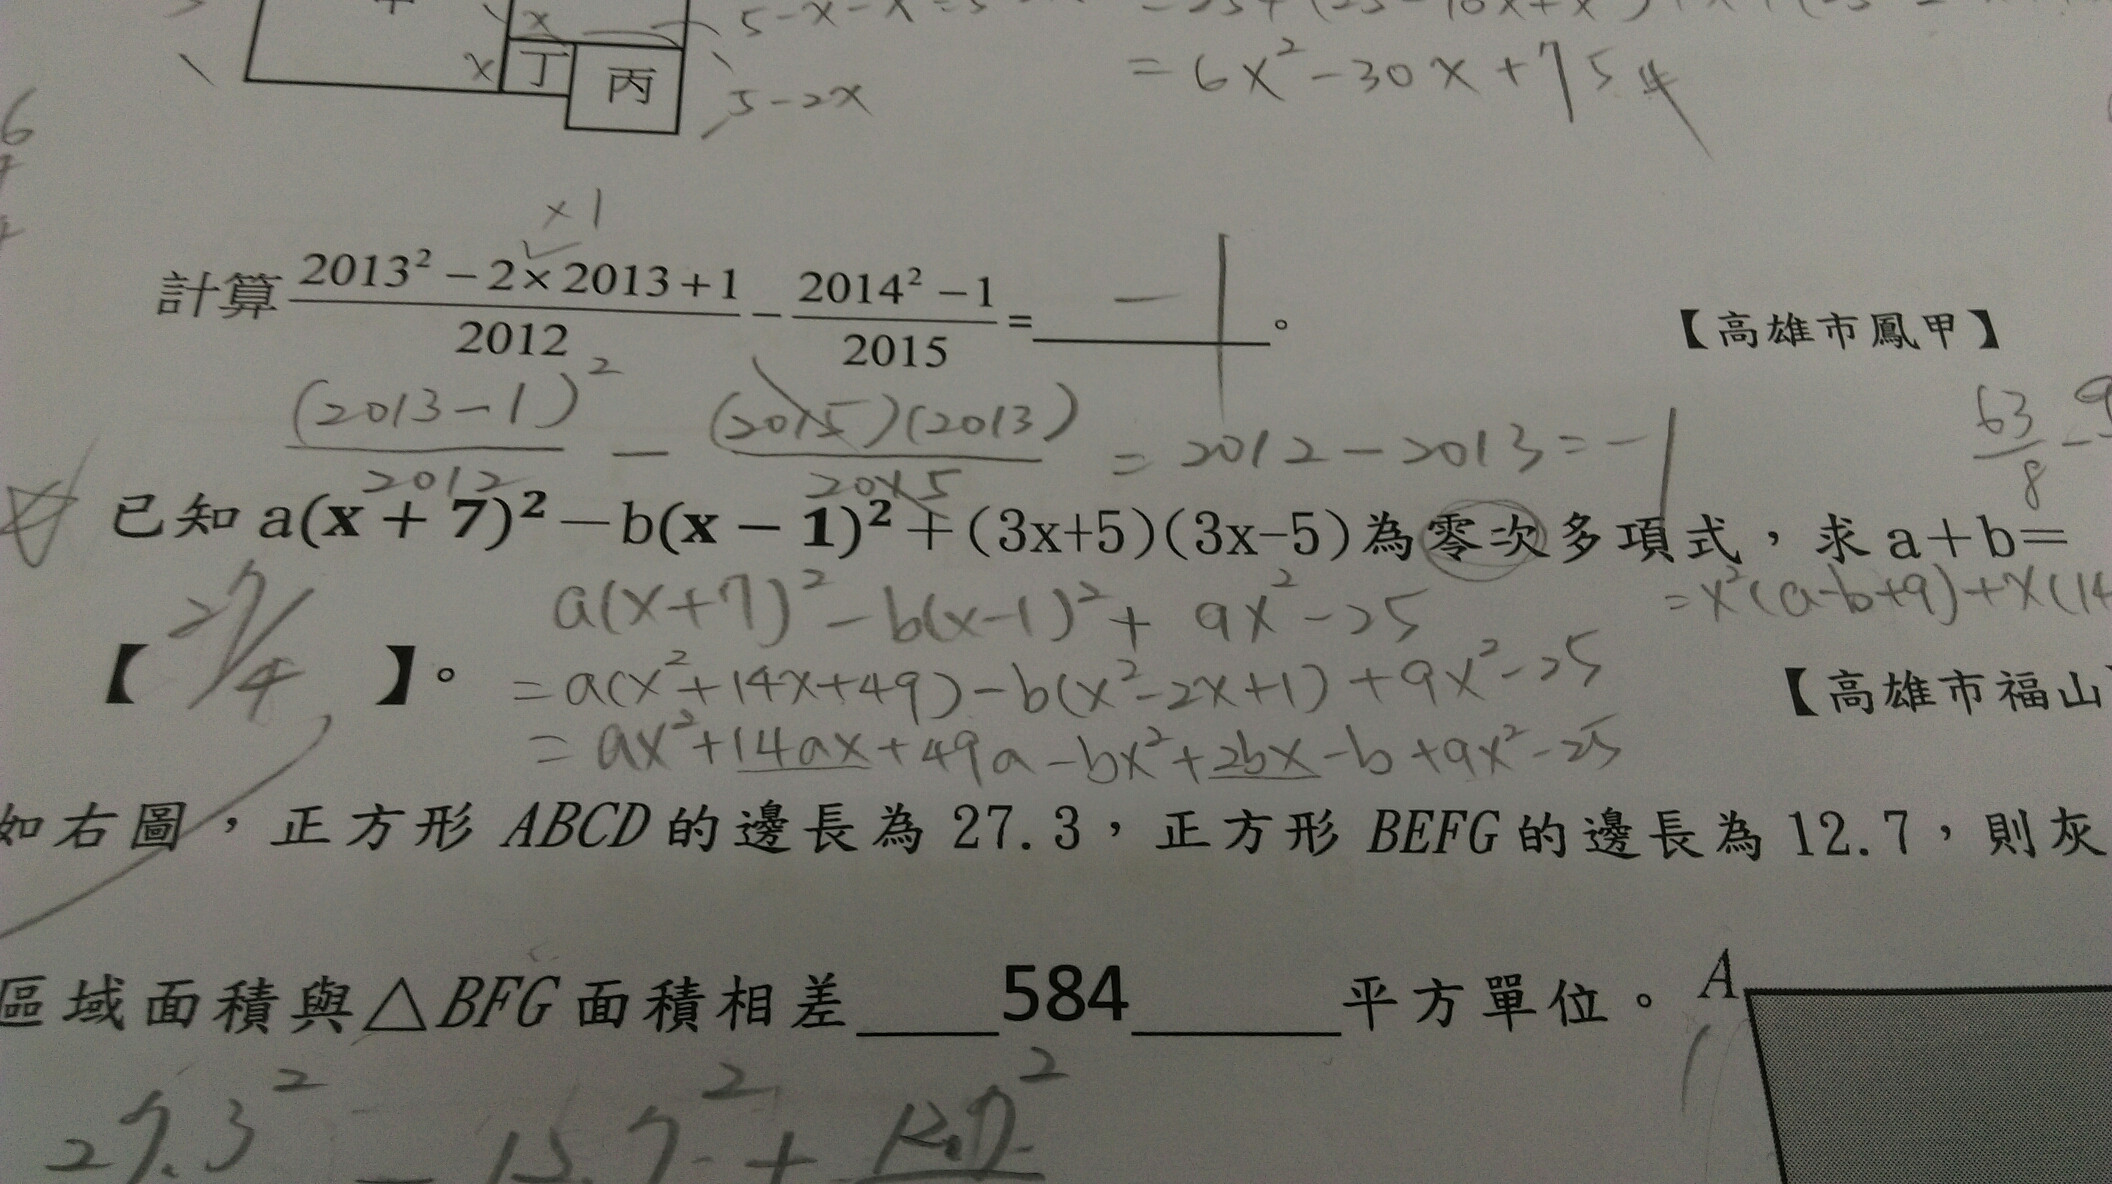 x 5-x-x
丁 丙
x 5-2x
= 6x² - 30x + 75
×1
計算 (2013² - 2×2013+1)/2012 - (2014² - 1)/2015 = -1 。 【高雄市鳳甲】
(2013-1)²/2012 - (2015)(2013)/2015 = 2012-2013 = -1
63/8 - 9
已知 a(x + 7)² - b(x - 1)² + (3x+5)(3x-5) 為零次多項式，求 a+b=
a(x+7)² - b(x-1)² + 9x² - 25 = x²(a-b+9)+x(14
【 27/4 】。 = a(x²+14x+49) - b(x²-2x+1) + 9x² - 25 【高雄市福山
= ax²+14ax+49a - bx²+2bx - b + 9x² - 25
如右圖，正方形 ABCD 的邊長為 27.3，正方形 BEFG 的邊長為 12.7，則灰
區域面積與△BFG 面積相差 584 平方單位。 A
27.3² - 12.7² + 12.7²